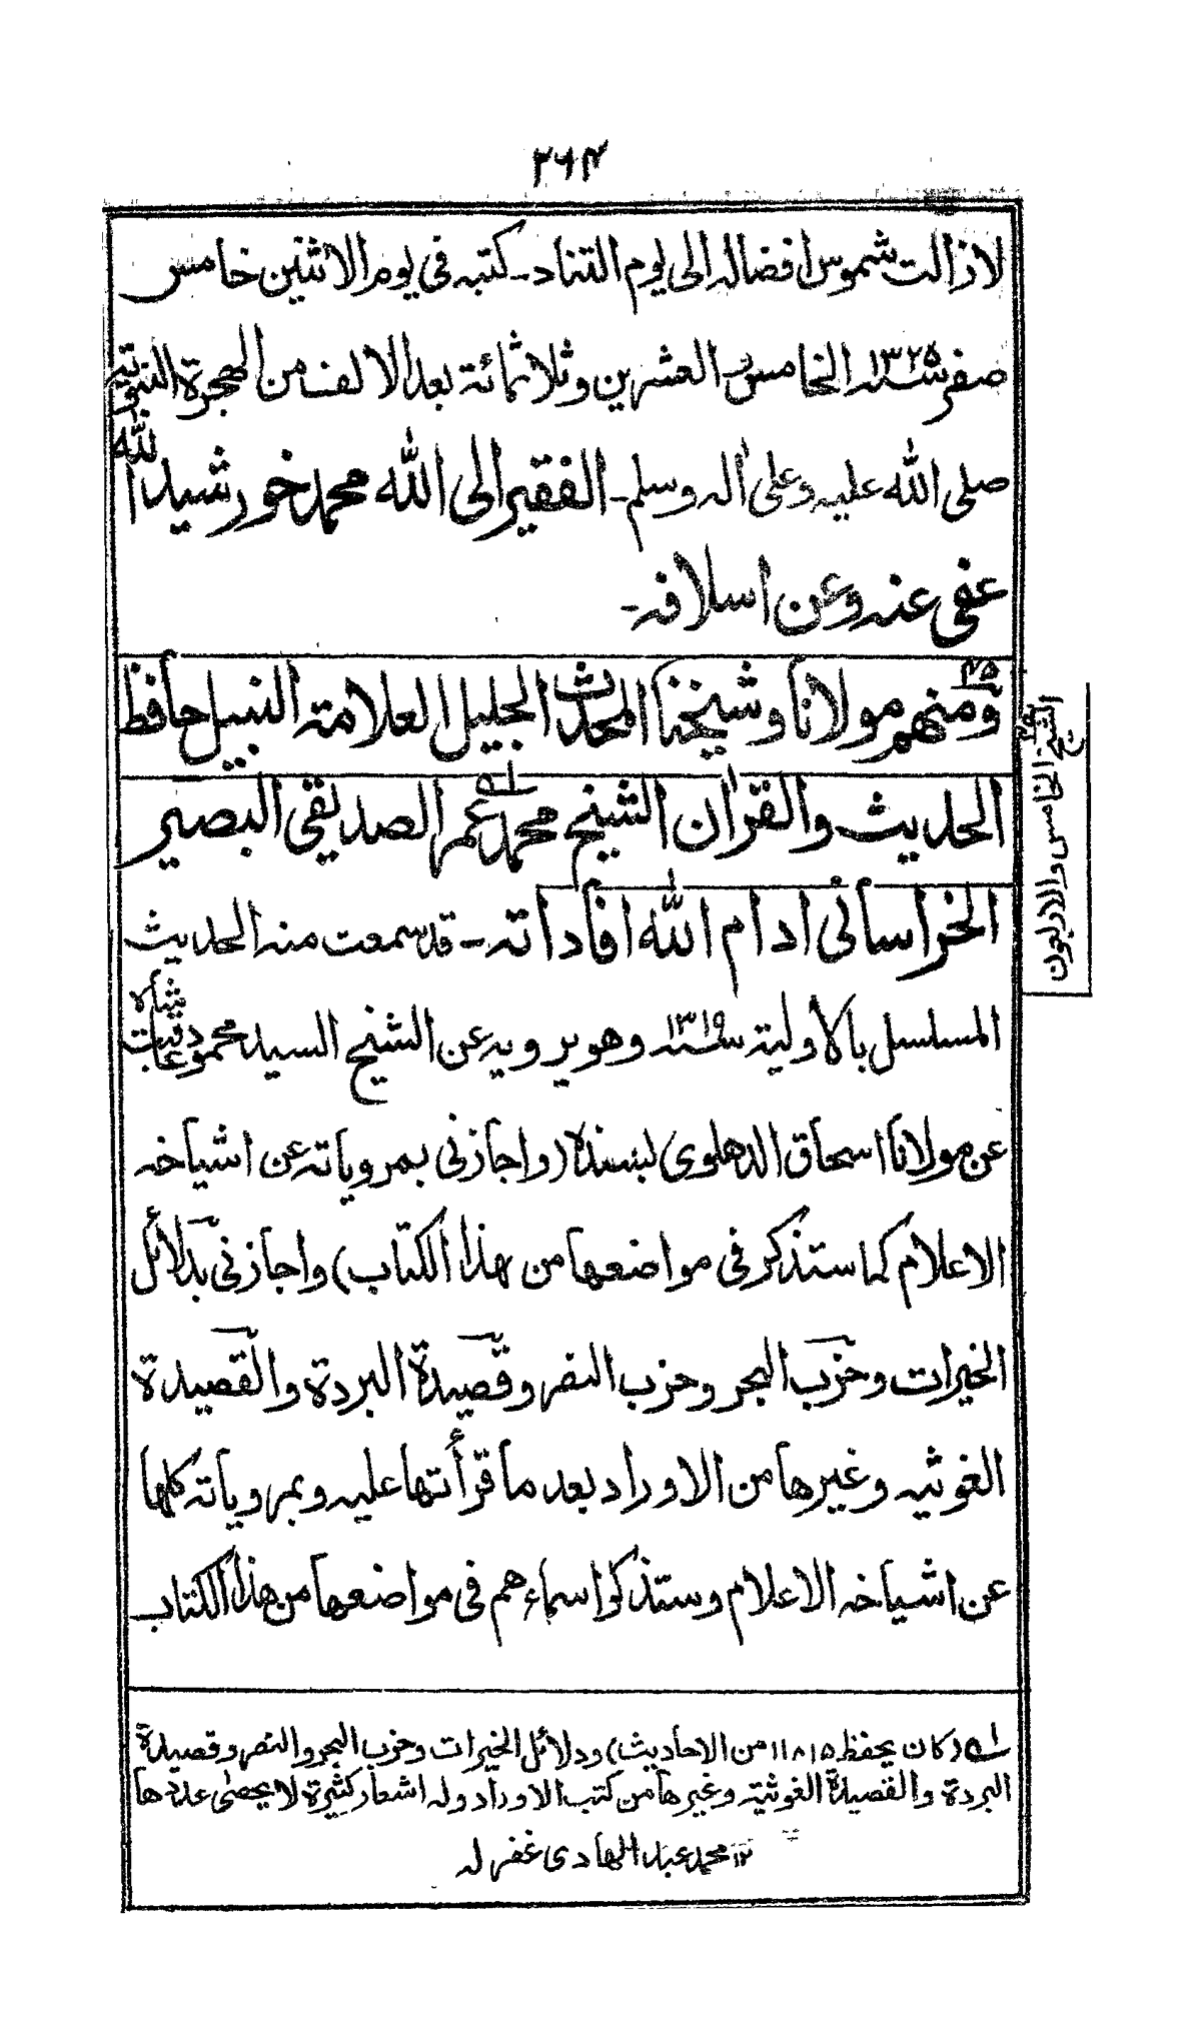 ۲۶۴
لازالت شموس افضاله الى يوم التناد۔ كتبه فى يوم الاثنين خامس
صفر سنه ۱۳۲۵ الخامس والعشرين وثلاثمائة بعد الالف من الهجرة النبوية
صلى الله عليه وعلى اله وسلم۔ الفقير الى الله محمد خورشيد الله
عفى عنه وعن اسلافه۔
۴۵ ومنهم مولانا وشيخنا المحدث الجليل العلامة النبيل حافظ
الحديث والقران الشيخ محمد عمر ۱ه الصديقى البصير
الخراسانى ادام الله افاداته۔ قد سمعت منه الحديث
المسلسل بالاولية سنه ۱۳۱۹ وهو يرويه عن الشيخ السيد محمود شاه
عن مولانا اسحاق الدهلوى بسنده (واجازنى بمروياته عن اشياخه
الاعلام كما ستذكر فى مواضعها من هذا الكتاب) واجازنى بدلائل
الخيرات وحزب البحر وحزب النصر وقصيدة البردة والقصيدة
الغوثيه وغيرها من الاوراد بعد ما قرأتها عليه وبمروياته كلها
عن اشياخه الاعلام وستذكر اسماءهم فى مواضعها من هذا الكتاب
الشيخ الخامس والاربعون
۱ه (كان يحفظ ۱۱۸۱۵ من الاحاديث) ودلائل الخيرات وحزب البحر والنصر وقصيدة
البردة والقصيدة الغوثية وغيرها من كتب الاوراد وله اشعار كثيرة لا يحصى عددها
۱۲ محمد عبد الهادى غفر له